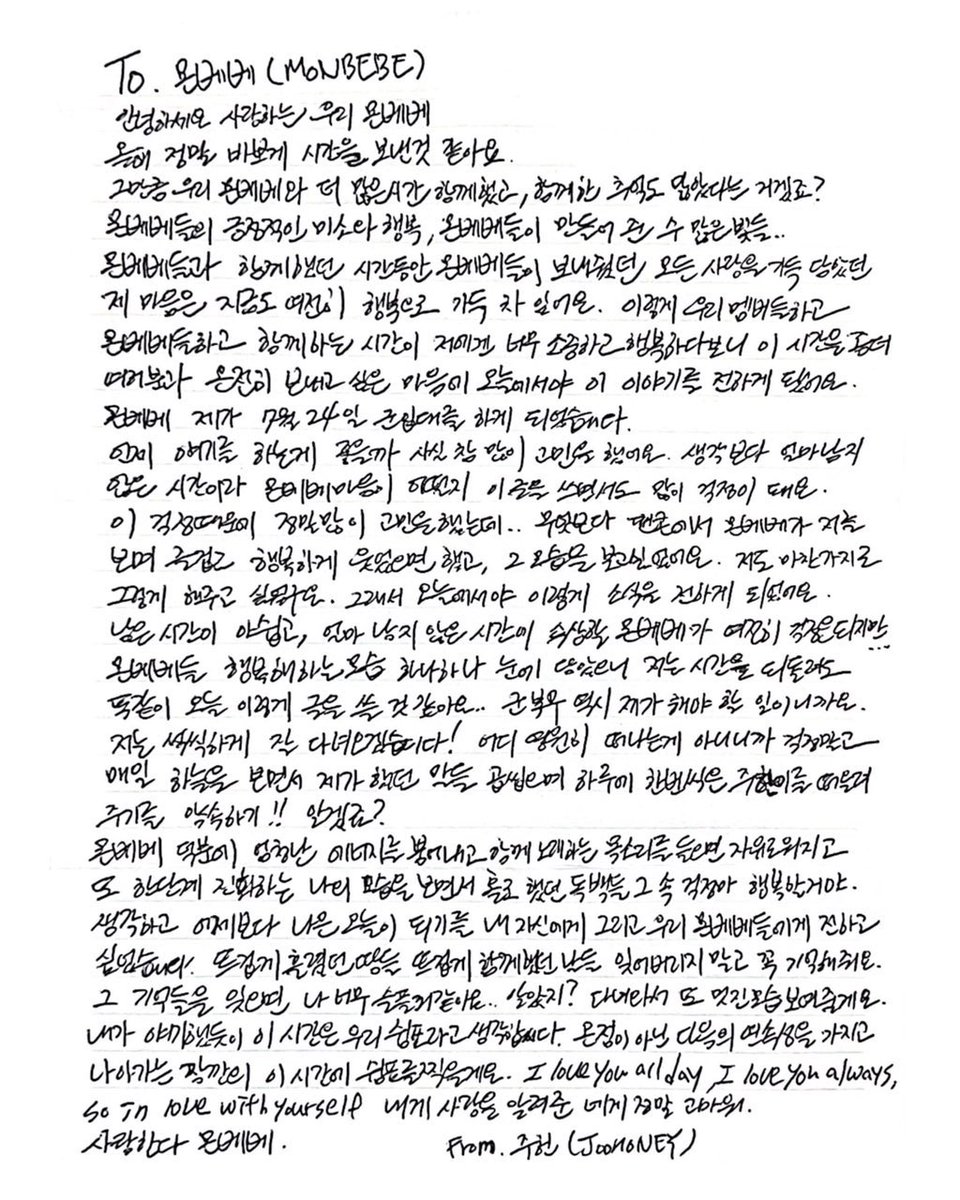 To. 몬베베 (MONBEBE)
안녕하세요 사랑하는 우리 몬베베
올해 정말 바쁘게 시간을 보낸것 같아요.
그만큼 우리 몬베베와 더 많은시간 함께했고, 함께한 추억도 많았다는 거겠죠?
몬베베들의 긍정적인 미소와 행복, 몬베베들이 만들어 준 수 많은 빛들..
몬베베들과 함께했던 시간동안 몬베베들이 보내줬던 모든 사랑을 가득 담았던
제 마음은 지금도 여전히 행복으로 가득 차 있어요. 이렇게 우리 멤버들하고
몬베베들하고 함께하는 시간이 저에겐 너무 소중하고 행복하다보니 이 시간을 통해
여러분과 온전히 보내고 싶은 마음에 오늘에서야 이 이야기를 전하게 됐어요.
몬베베 제가 7월 24일 군입대를 하게 되었습니다.
언제 얘기를 하는게 좋을까 사실 참 많이 고민을 했어요. 생각보다 얼마남지
않은 시간이라 몬베베마음이 어떤지 이 글을 쓰면서도 많이 걱정이 돼요.
이 걱정때문에 정말많이 고민을했는데.. 무엇보다 팬콘에서 몬베베가 저를
보며 즐겁고 행복하게 웃었으면 했고, 그 모습을 보고싶었어요. 저도 마찬가지로
그렇게 해주고 싶었구요. 그래서 오늘에서야 이렇게 소식을 전하게 되었어요.
남은 시간이 아쉽고, 얼마 남지 않은 시간이 속상할 몬베베가 여전히 걱정은되지만...
몬베베들 행복해하는모습 하나하나 눈에 담았으니 저는 시간을 되돌려도
똑같이 오늘 이렇게 글을 쓸 것 같아요.. 군 복무 역시 제가 해야 할 일이니까요.
저는 씩씩하게 잘 다녀오겠습니다! 어디 영원히 떠나는게 아니니까 걱정말고
매일 하늘을 보면서 제가 했던 말들 곱씹으며 하루에 한번씩은 주헌이를 떠올려
주기를 약속하기!! 알겠죠?
몬베베 덕분에 엄청난 에너지를 뿜어내고 함께 노래하는 목소리를 들으면 자유로워지고
또 한단계 진화하는 나의 모습을 보면서 홀로 했던 독백들 그 속 걱정마 행복할거야.
생각하고 어제보다 나은 오늘이 되기를 내 자신에게 그리고 우리 몬베베들에게 전하고
싶었습니다. 뜨겁게 흘렸던 땀들 뜨겁게 함께했던 날들 잊어버리지 말고 꼭 기억해줘요.
그 기억들을 잊으면, 나 너무 슬플거같아요.. 알았지? 다녀와서 또 멋진모습 보여줄게요.
내가 얘기했듯이 이 시간은 우리 쉼표라고 생각합니다. 온점이 아닌 다음의 연속성을 가지고
나아가는 잠깐의 이 시간에 쉼표를찍을게요. I love you all day, I love you always,
so in love with yourself 내게 사랑을 알려준 네게 정말 고마워.
사랑한다 몬베베. From. 주헌 (JOOHONEY)